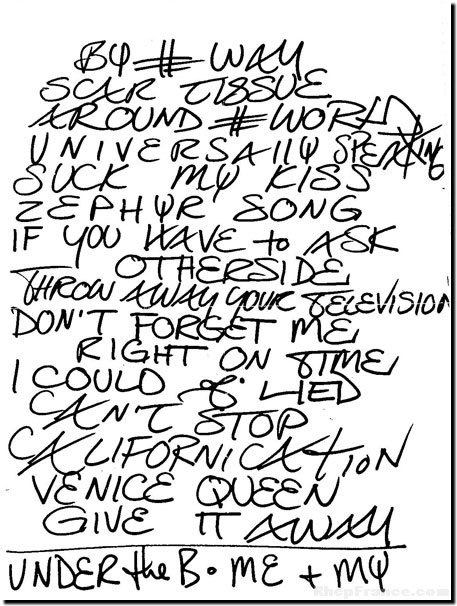 BY # WAY
SCAR TISSUE
AROUND # WORLD
UNIVERSALLY SPEAKING
SUCK MY KISS
ZEPHYR SONG
IF YOU HAVE to ASK
OTHERSIDE
THROW AWAY YOUR TELEVISION
DON'T FORGET ME
RIGHT ON TIME
I COULD OF LIED
CAN'T STOP
CALIFORNICATION
VENICE QUEEN
GIVE IT AWAY
UNDER the B • ME + MY
RhcpFrance.com